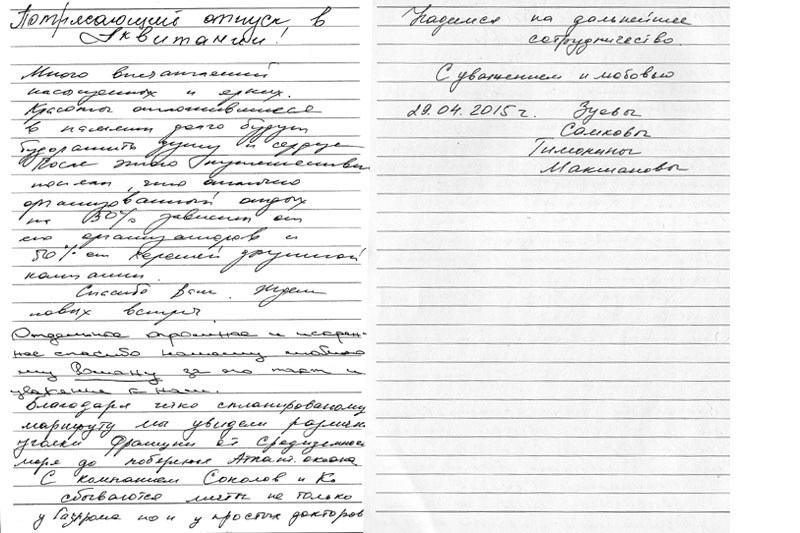 Потрясающий отпуск в
Аквитании!
Много впечатлений
насыщенных и ярких.
Красоты отложившиеся
в памяти долго будут
будоражить душу и сердце
После этого путешествия
поняли, что отлично
организованный отдых
на 50% зависит от
его организаторов и
50% от хорошей дружной
компании.
Спасибо Вам. Ждем
новых встреч.
Отдельное огромное и искрен-
нее спасибо нашему любимо
му Роману за его такт и
уважение к нам.
Благодаря четко спланированому
маршруту мы увидели различн
уголки Франции от Средиземного
моря до побережья Атлант. океана
С компанией Соколов и Ко
сбываются мечты не только
у Газпрома но и у простых докторов
Надеемся на дальнейшее
сотрудничество.
С уважением и любовью
29.04.2015 г. Зуевы
Саиковы
Тимокины
Макшановы